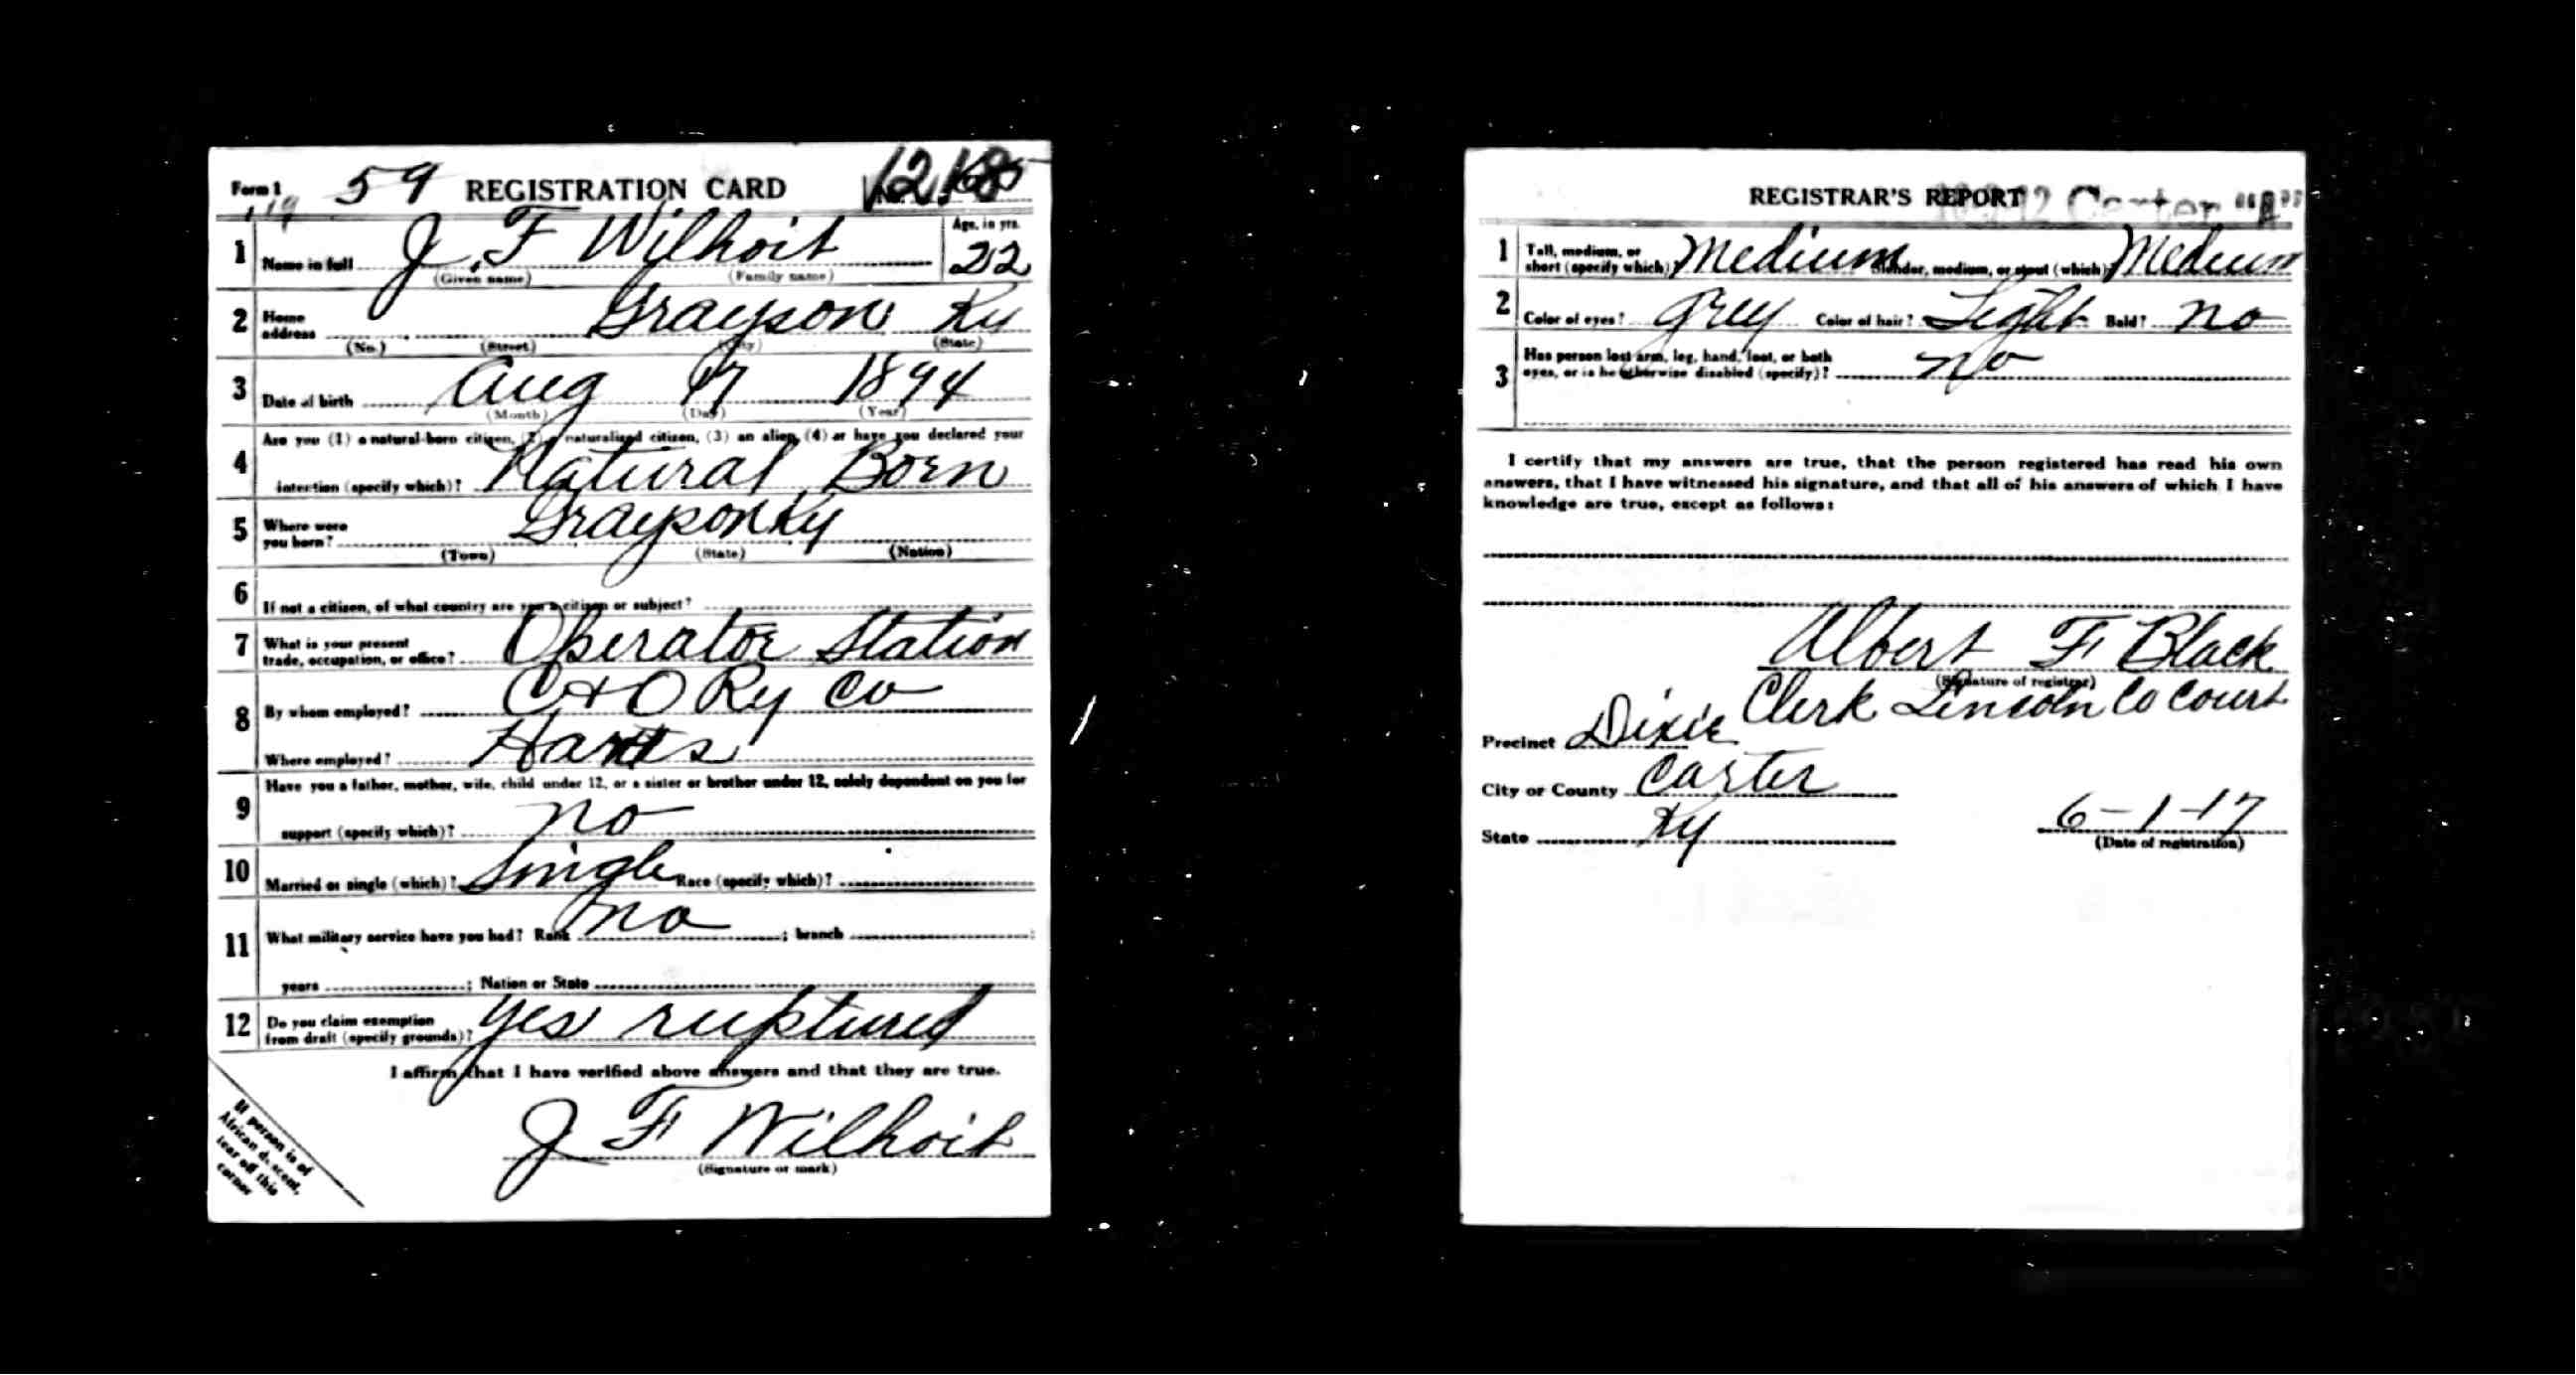 Form 1 59 REGISTRATION CARD
1 Name in full J. F Wilhoit Age, in yrs. 22
(Given name) (Family name)
2 Home address Grayson Ky
(No.) (Street) (City) (State)
3 Date of birth Aug 17 1894
(Month) (Day) (Year)
Are you (1) a natural-born citizen, (2) a naturalized citizen, (3) an alien, (4) or have you declared your
4 intention (specify which)? Natural Born
5 Where were you born? Grayson Ky
(Town) (State) (Nation)
6 If not a citizen, of what country are you a citizen or subject?
7 What is your present trade, occupation, or office? Operator Station
8 By whom employed? C & O Ry Co
Where employed?
Have you a father, mother, wife, child under 12, or a sister or brother under 12, solely dependent on you for
9 support (specify which)? no
10 Married or single (which)? Single Race (specify which)?
11 What military service have you had? Rank no ; branch ;
years ; Nation or State
12 Do you claim exemption from draft (specify grounds)? Yes ruptured
I affirm that I have verified above answers and that they are true.
J F Wilhoit
(Signature or mark)
If person is of
African descent,
tear off this
corner
REGISTRAR'S REPORT Carter "A"
1 Tall, medium, or short (specify which)? Medium Slender, medium, or stout (which)? Medium
2 Color of eyes? Grey Color of hair? Light Bald? no
3 Has person lost arm, leg, hand, foot, or both eyes, or is he otherwise disabled (specify)? no
I certify that my answers are true, that the person registered has read his own
answers, that I have witnessed his signature, and that all of his answers of which I have
knowledge are true, except as follows:
Albert F Black
(Signature of registrar)
Clerk Lincoln Co Court
Precinct Dixie
City or County Carter
State Ky 6-1-17
(Date of registration)